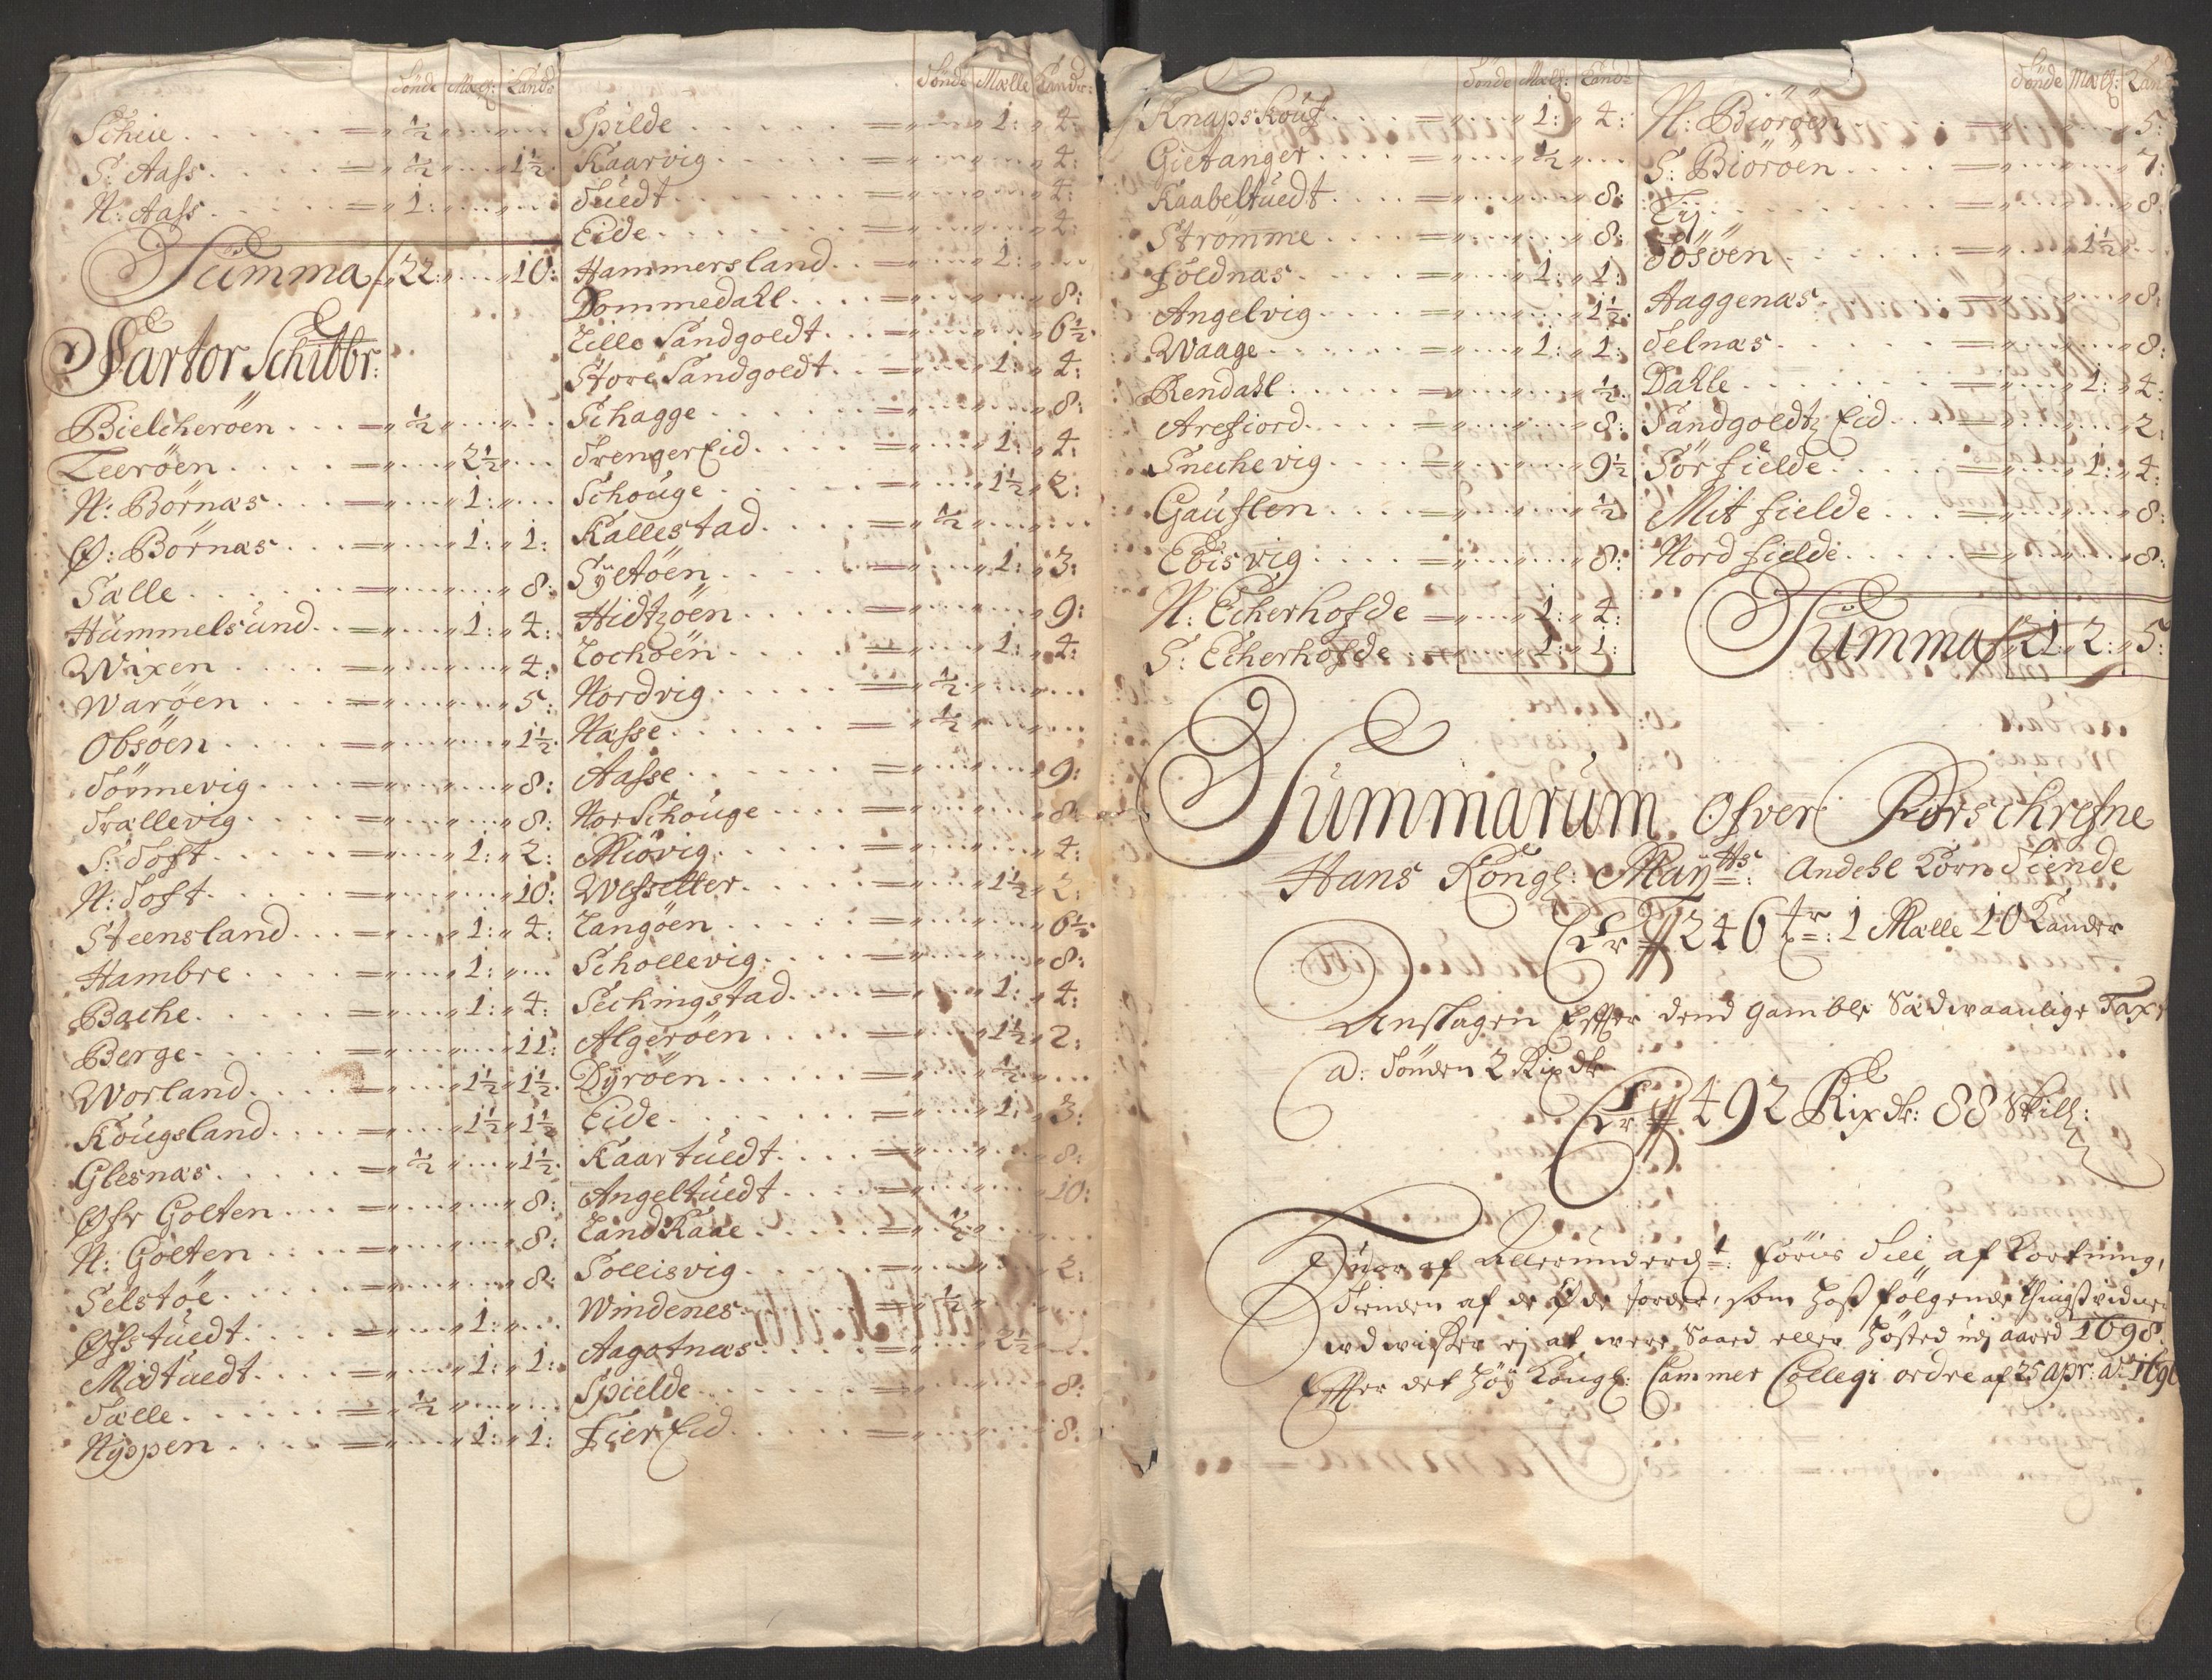 Tönde Mælle Kander
Schie = ½
S: Aass = ½ 1½
N: Aass = 1:
Summa 22: 10:
Sartor Schibbr:
Bielcheröen = ½
Leeröen = 2½
N: Börnæs = 1:
Ø: Börnæs = 1: 1:
Sælle = 8:
Hummelsund = 1: 4:
Wixen = 4:
Waröen = 5:
Obsöen = 1½
Tönnevig = 8:
Trællevig = 8:
S: Toft = 1: 2:
N: Toft = 10:
Steensland = 1: 4:
Hambre = 1:
Bache = 1: 4:
Berge = 11:
Worland = 1½ 1½
Kougsland = 1½ 1½
Glesnæs = ½ 1½
Øfr Golten = 8:
N: Golten = 8:
Selstöe = 8:
Øfstuedt = 1:
Midtuedt = 1: 1:
Tælle = ½
Nyppen = 1: 1:
Tönde Mælle Kander:
Spilde = 1: 4:
Kaarvig = 4:
Tuedt = 4:
Eide = 4:
Hammersland = 1:
Dommedahl = 8:
Lille Sandgoldt = 6½
Store Sandgoldt = 1: 4:
Schagge = 8:
Trenger Eid = 1: 4:
Schouge = 1½ 2:
Kallestad = ½
Syltöen = 1: 3:
Hidtzöen = 9:
Lochöen = 1: 4:
Nordvig = ½
Næsse = ½
Aasse = 9:
Nor Schouge = 8:
Miövig = 4:
Wessetter = 1½ 2:
Langöen = 6½
Schollevig = 8:
Sechingstad = 1: 4:
Algeröen = 1½ 2:
Dyröen = ½
Eide = 1: 3:
Kaartuedt = 8:
Angeltuedt = 10:
Land Raae = ½
Sollisvig = 2:
Windenes = ½
Aagotnæs = 2½
Spielde = 8:
Fier Eid = 8:
Tönde Mælz: Kand:
Knapskoug = 1: 4:
Gietanger = ½
Kaabeltuedt = 8:
Strömme = 8:
Foldnæs = 1: 1:
Angelvig = 1½
Waage = 1: 1:
Rendahl = ½
Arefiord = 8:
Snechevig = 9½
Gauslen = ½
Ebisvig = 8:
N: Echerhofde = 1: 4:
S: Echerhofde = 1: 1:
Tönde Mælz: Kan
N: Biöröen = 5:
S: Biöröen = 7:
Ly = 8:
Tösöen = 1½
Haggenæs = 8:
Telnæs = 8:
Dahle = 1: 4:
Sandgoldtz Eid = 2:
Sör fielde = 1: 4:
Mit fielde = 8:
Nord fielde = 8:
Summa 21: 2: 5:
Summarum Ofver Forschrefne
Hans Kongl: Mayts: Andehl Korn Tiende
Er 246 tr: 1 Mælle 10 Kander
Anslagen Efter dend gamble Sædwaanlige Taxt
a: Tönden 2 Rixdr
Er 492 Rixdr: 88 Skill:
Huor af allerunderdt: föris Till af Kortning,
Tienden af de Øde Jorder, som hoß fölgende Thingswidner
udwiser ej at were Saaed eller Hösted udj aared 1698.
Efter det Höy Kongl: Cammer Collegi ordre af 25 apr: A: 169